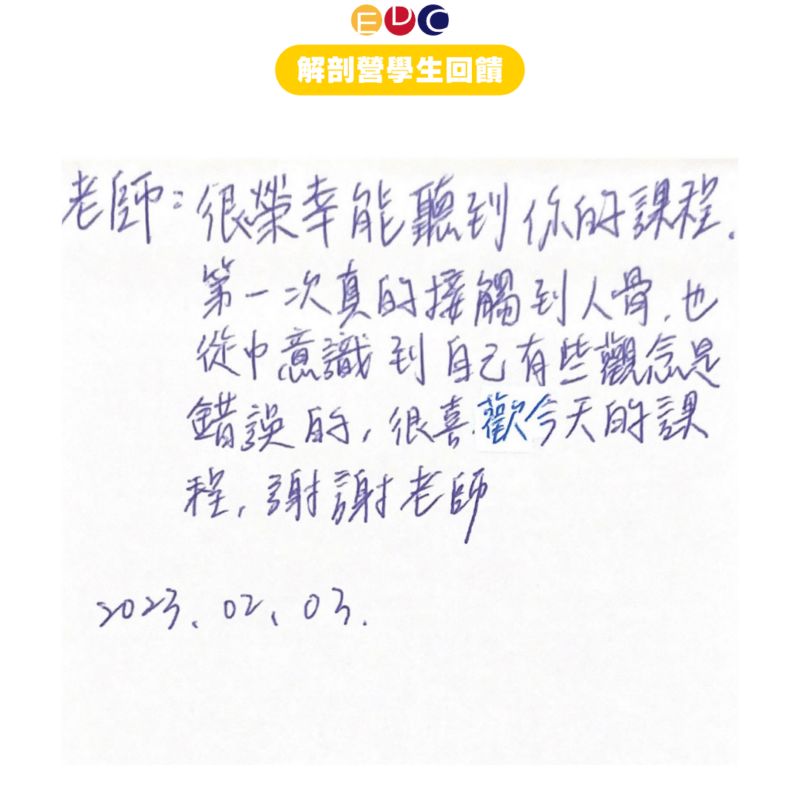 EDC
解剖營學生回饋
老師：很榮幸能聽到你的課程.
第一次真的接觸到人骨,也
從中意識到自己有些觀念是
錯誤的,很喜歡今天的課
程,謝謝老師
2023、02、03.